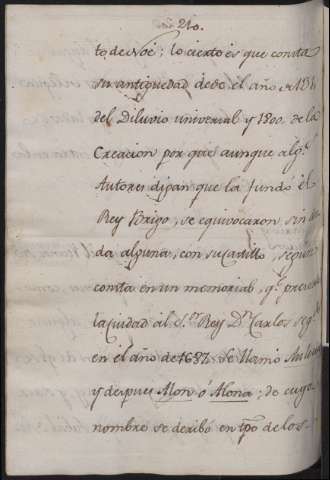 210.
to de Noè; lo cierto es que consta
su antiguedad desde el año
del Diluvio universal y 1800. de la
Creacion por que aunque alg.s
Autores digan que la fundó el
Rey Brigo, se equivocaron sin du
da alguna, con su Castillo, segun
consta en un memorial, q.e presentó
la Ciudad al S.or Rey D.n Carlos seg.do
en el año de 1687. Se llamó
y despues Alon ó Alona; de cuyo
nombre se deribó en tpõ de los